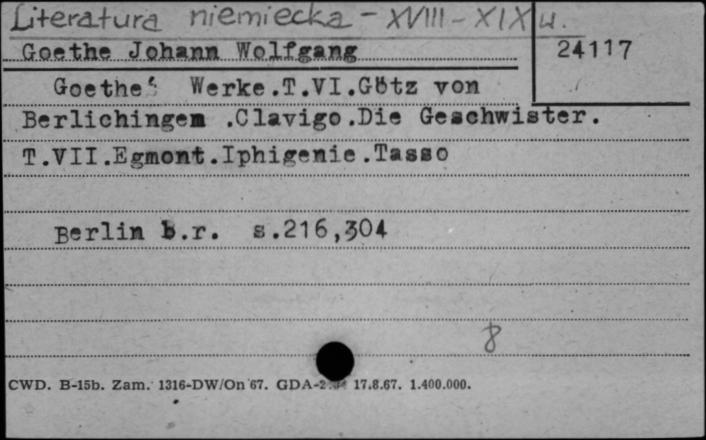 Literatura niemiecka - XVIII - XIX w.
Goethe Johann Wolfgang
24117
Goethe's Werke.T.VI.Götz von
Berlichingen .Clavigo.Die Geschwister.
T.VII.Egmont.Iphigenie.Tasso
Berlin b.r. s.216,304
8
CWD. B-15b. Zam. 1316-DW/On 67. 17.8.67. 1.400.000.